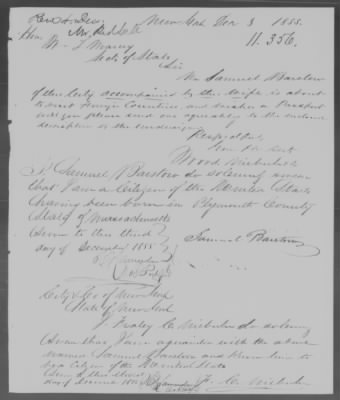 New York Dec 3 1855.
11.356.
Hon
W. L. Marcy
Secty of State
Sir
Mr Samuel Barstow
of this City accompanied by his Wife is about
to visit Foreign Countries and wishes a Passport
will you please send one agreeably to the enclosed
description to the undersigned
Respectfully
Your Ob Servt
I Samuel Barstow do solemnly swear
that I am a Citizen of the United States
having been born in Plymouth County
State of Massachusetts
Sworn to this third
day of December 1855
Samuel Barstow
City & Co of New York
State of New York
do solemnly
Swear that I am acquainted with the above
named Samuel Barstow and know him to
be a Citizen of the United States
Sworn to this third
day of December 1855